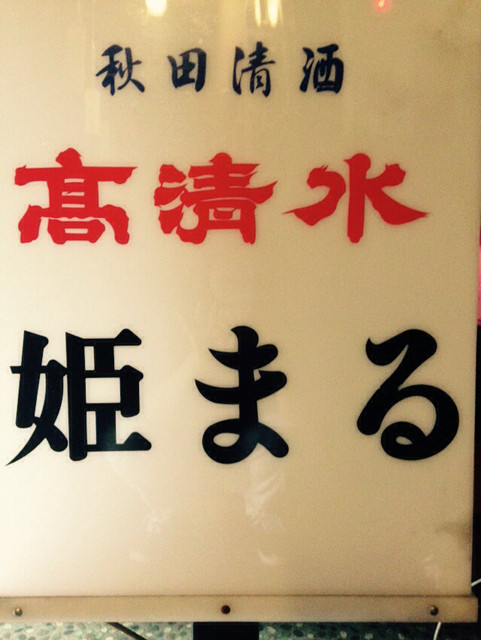 秋田清酒
髙清水
姫まる